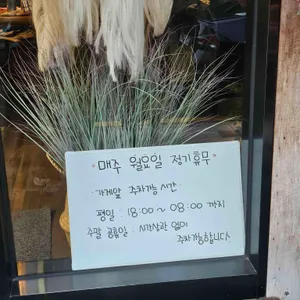 • 매주 월요일 정기휴무 •
· 가게앞 주차가능 시간
평일 : 18:00 ~ 08:00 까지
주말 공휴일 : 시간상관 없이
주차가능합니다.